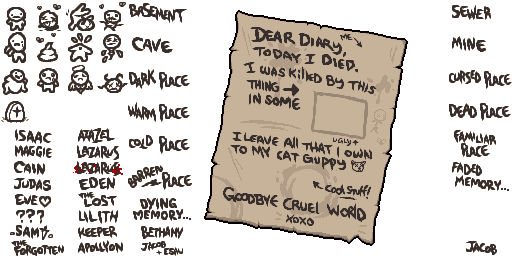 BASEMENT
CAVE
DARK PLACE
WARM PLACE
COLD PLACE
BARREN PLACE
DYING
MEMORY...
ISAAC
MAGGIE
CAIN
JUDAS
EVE
???
SAMS
THE
FORGOTTEN
AZAZEL
LAZARUS
LAZARUS
EDEN
THE
LOST
LILITH
KEEPER
APOLLYON
BETHANY
JACOB
+ ESAU
DEAR DIARY,
ME
TODAY I DIED.
I WAS KILLED BY THIS
THING
IN SOME
UGLY
I LEAVE ALL THAT I OWN
TO MY CAT GUPPY
COOL STUFF!
GOODBYE CRUEL WORLD
XOXO
SEWER
MINE
CURSED PLACE
DEAD PLACE
FAMILIAR
PLACE
FADED
MEMORY...
JACOB